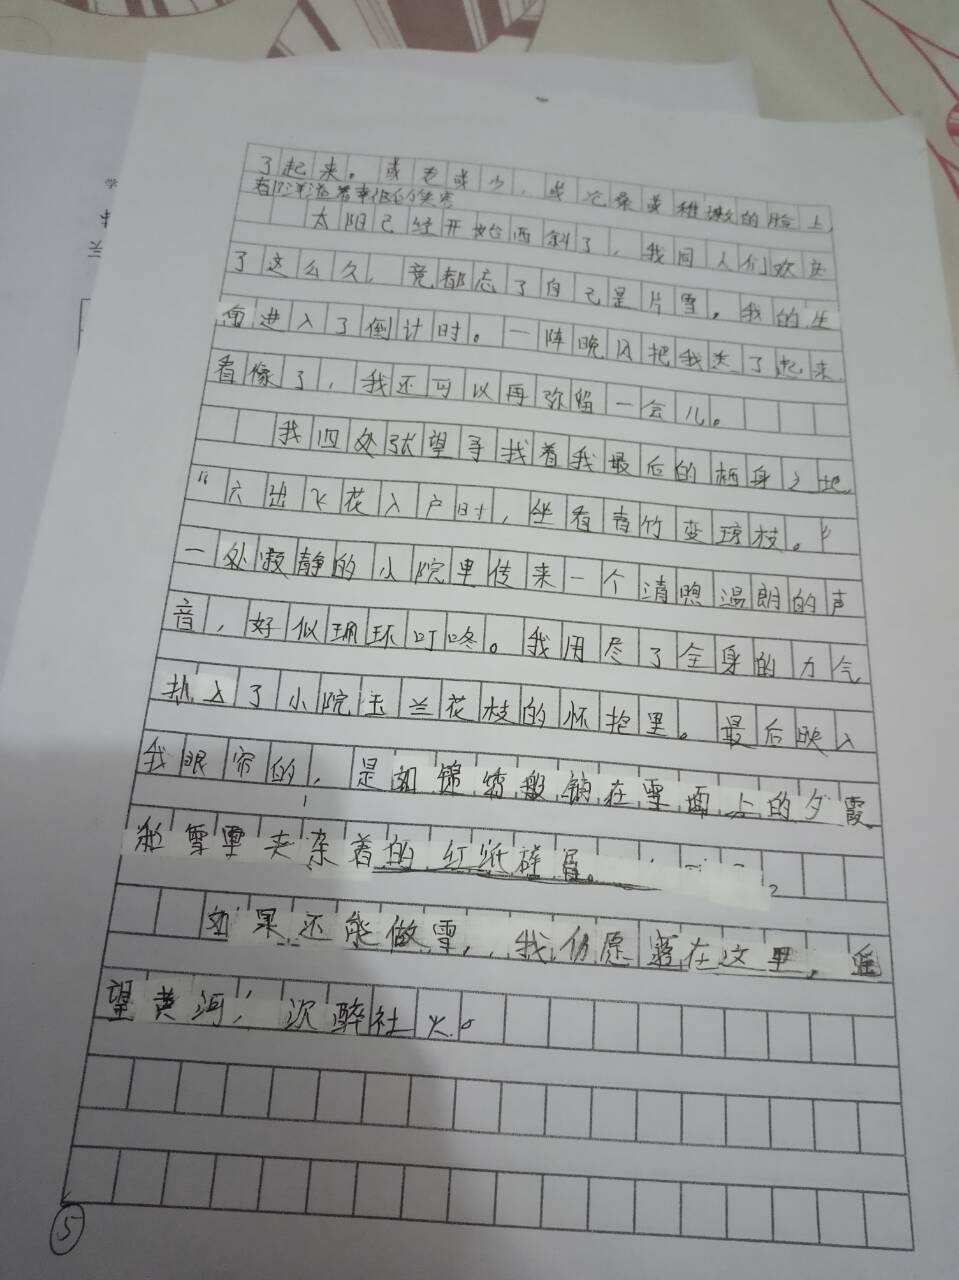 了起来。或老或少，或沧桑或稚嫩的脸上
都洋溢着幸福的笑容
太阳已经开始西斜了，我同人们欢庆
了这么久，竟都忘了自己是片雪。我的生
命进入了倒计时。一阵晚风把我送了起来
看像了，我还可以再弥留一会儿。
我四处张望寻找着我最后的栖身之地
“六出飞花入户时，坐看青竹变琼枝。”
一处凝静的小院里传来一个清煦温朗的声
音，好似珮环叮咚。我用尽了全身的力气
扒入了小院玉兰花枝的怀抱里。最后映入
我眼帘的，是如锦第般铺在雪面上的夕霞
和雪里夹杂着的红纸碎屑。
如果还能做雪，我仍愿落在这里，遥
望黄河，沉醉社火。
5
学